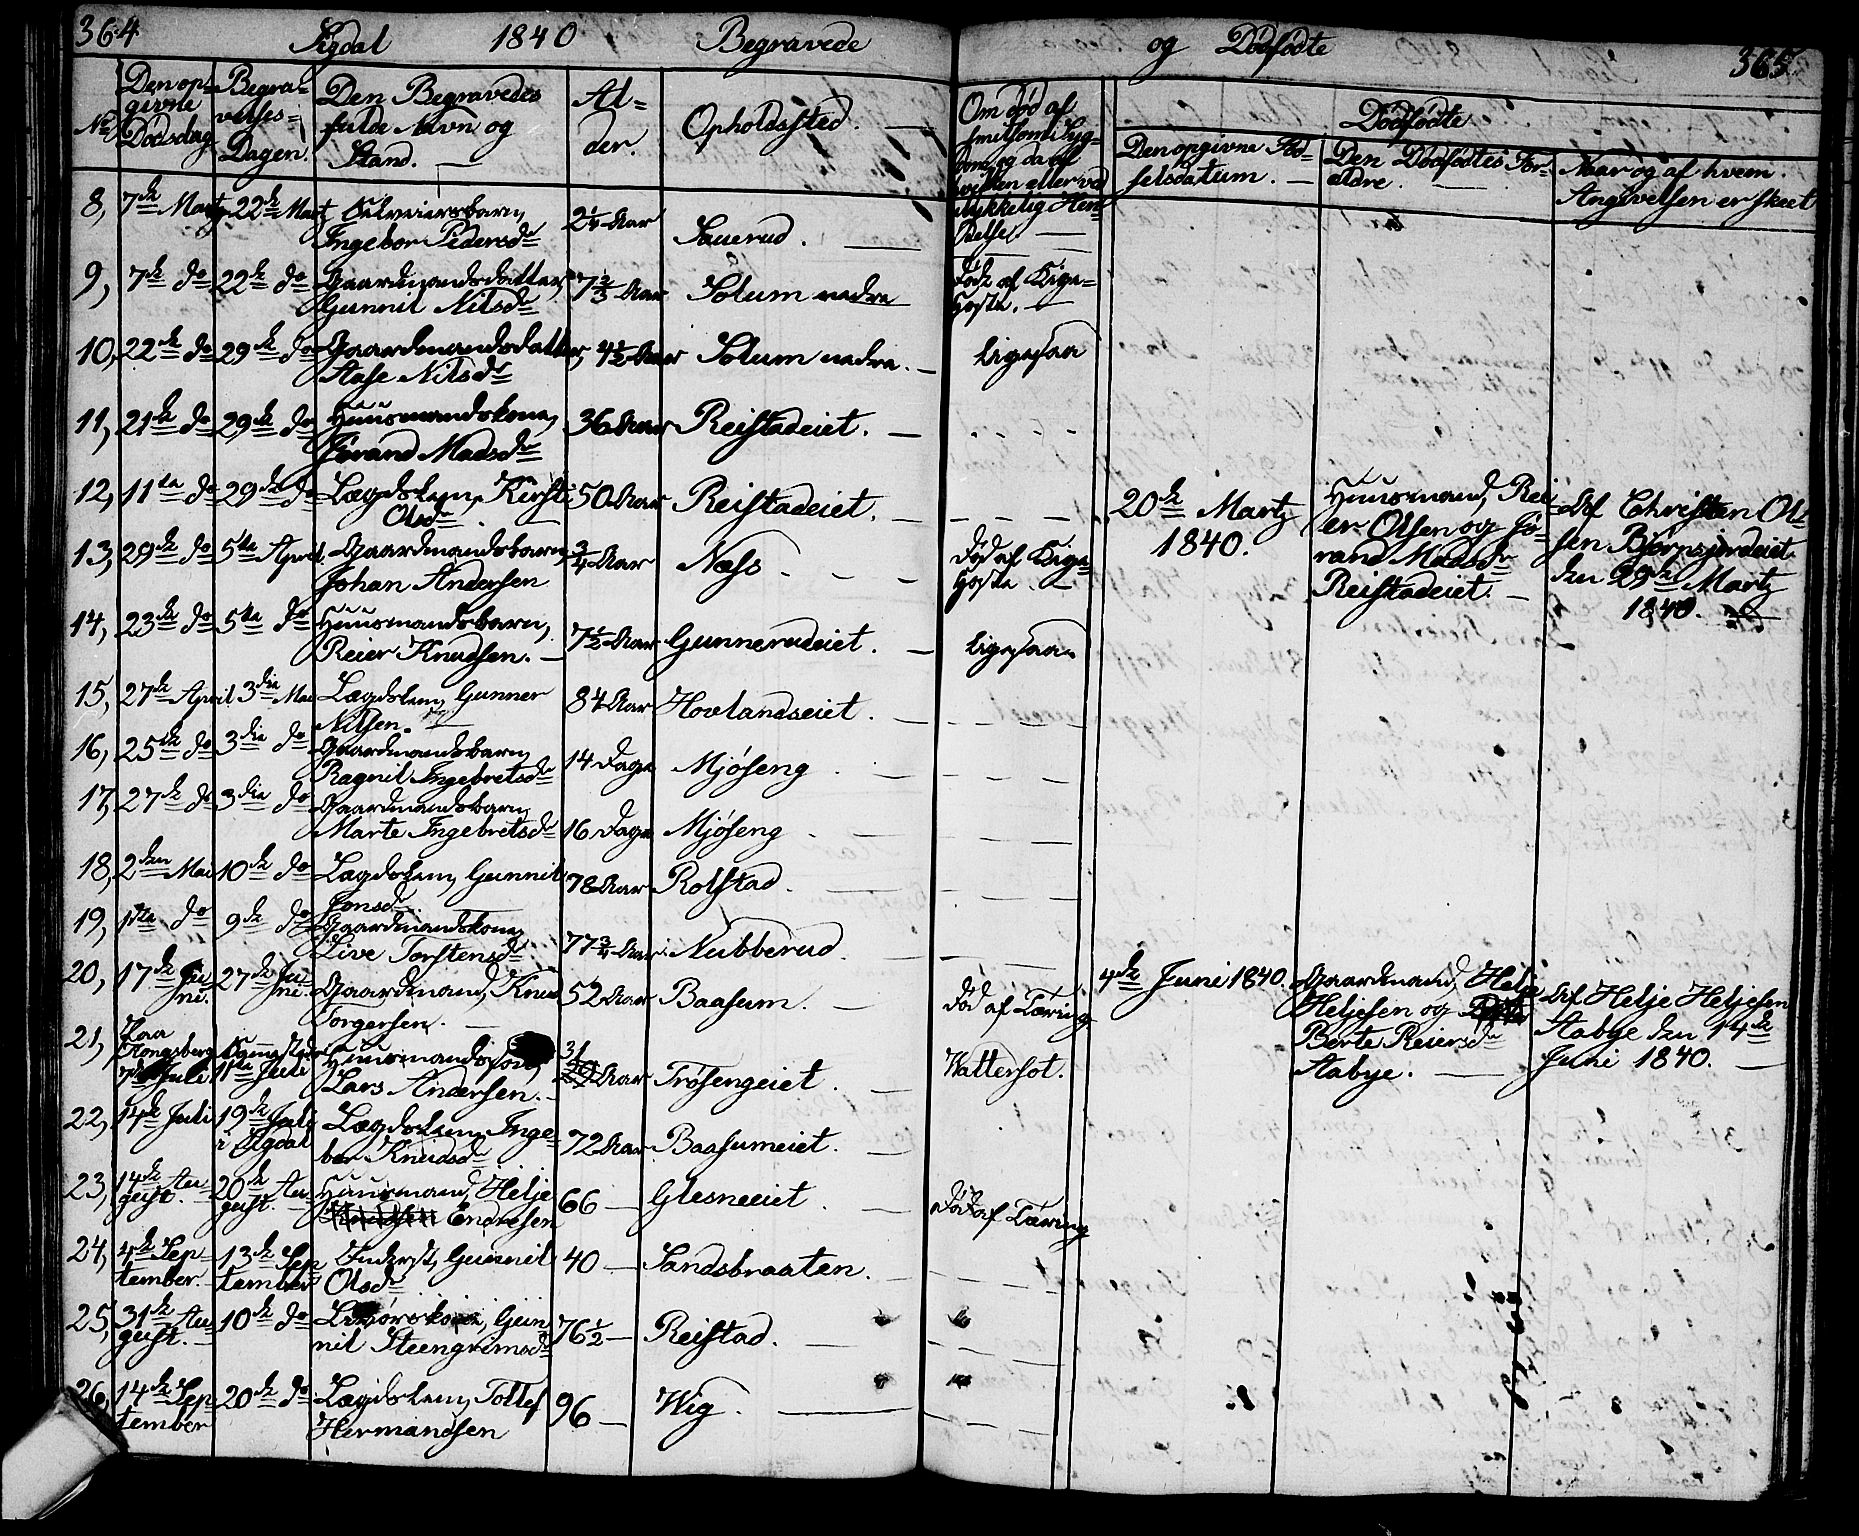 364 Sigdal 1840 Begravede og Dødfødte 365.
No
Den op-
givne
Dødsdag
Begra-
velses-
Dagen.
Den Begravedes
fulde Navn og
Stand.
Al-
der.
Opholdssted.
Om død af
smitsom Syg-
dom, og da af
hvilken eller ved
ulykkelig Hæn-
delse.
Dødfødte
Den opgivne Fød-
selsdatum.
Den Dødfødtes For-
ældre.
Naar og af hvem
Angivelsen er skeet
8, 7de Martz 22de Martz
Ingebor Pedersdr 2 1/4 Aar Sauerud.
9, 7de do 22de do Gaardmandsdatter,
Gunnil Nilsdr 7 2/3 Aar Solum nedre Død af Kige-
hoste.
10, 22de do 29de do Gaardmandsdatter,
Aase Nilsdr 4 1/2 Aar Solum nedre. ligesaa
11, 21de do 29de do Huusmandskone,
Jørand Madsdr 36 Aar Reistadeiet.
12, 11te do 29de do Lægdslem, Kirsti
Olsdr 50 Aar Reistadeiet.
20de Martz
1840.
Huusmand, Rei-
er Olsen og Jø-
rand Madsdr
Reistadeiet.
Af Christen Ol-
sen Bjørnsjordeiet
den 29de Martz
1840.
13, 29de do 5te April Gaardmandsbarn,
Johan Andersen 3/4 Aar Næss Død af Kige-
hoste.
14, 23de do 5te do Huusmandsbarn,
Reier Knudsen. 7 1/2 Aar Gunnerudeiet. ligesaa
15, 27de April 3die Mai Lægdslem, Gunner
Nilsen. 84 Aar Hovlandseiet.
16, 25de do 3die do Gaardmandsbarn,
Ragnil Ingebretsdr 14 Dage Mjøseng
17, 27de do 3die do Gaardmandsbarn,
Marte Ingebretsdr 16 Dage Mjøseng
18, 2den Mai 10de do Lægdslem, Gunnil
Jonsdr. 78 Aar Rolstad.
19, 1ste do 9de do Gaardmandskone,
Live Torstensdr 77 3/4 Aar. Nubberud.
20, 17de Ju-
ni. 27de Ju-
ni. Gaardmand, Knud
Torgersen. 52 Aar Baasum. Død af Tæring
4de Juni 1840.
Gaardmand, Helje
Heljesen og
Berte Reiersdr
Aabye.
Af Helje Heljesen
Aabye den 14de
Juni 1840.
21, Paa
Kongsberg
7de Juli Huusmandssøn,
Lars Andersen. 31 Aar Trøsengeiet. Wattersot.
22, 14de Juli 19de Juli
i Sigdal Lægdslem, Inge-
bor Knudsdr 72 Aar Baasumeiet.
23, 14de Au-
gust. 20de Au-
gust. Huusmand, Helje
Endresen 66 Glesneeiet Død af Tæring
24, 4de Sep-
tember. 13de Sep-
tember Inderst, Gunnil
Olsdr 40 Sandsbraaten.
25, 31de Au-
gust. 10de do Gun-
nil Steengrimsdr 76 1/2 Reistad.
26, 14de Sep-
tember 20de do Lægdslem, Tollef
Hermandsen 96 Wig.